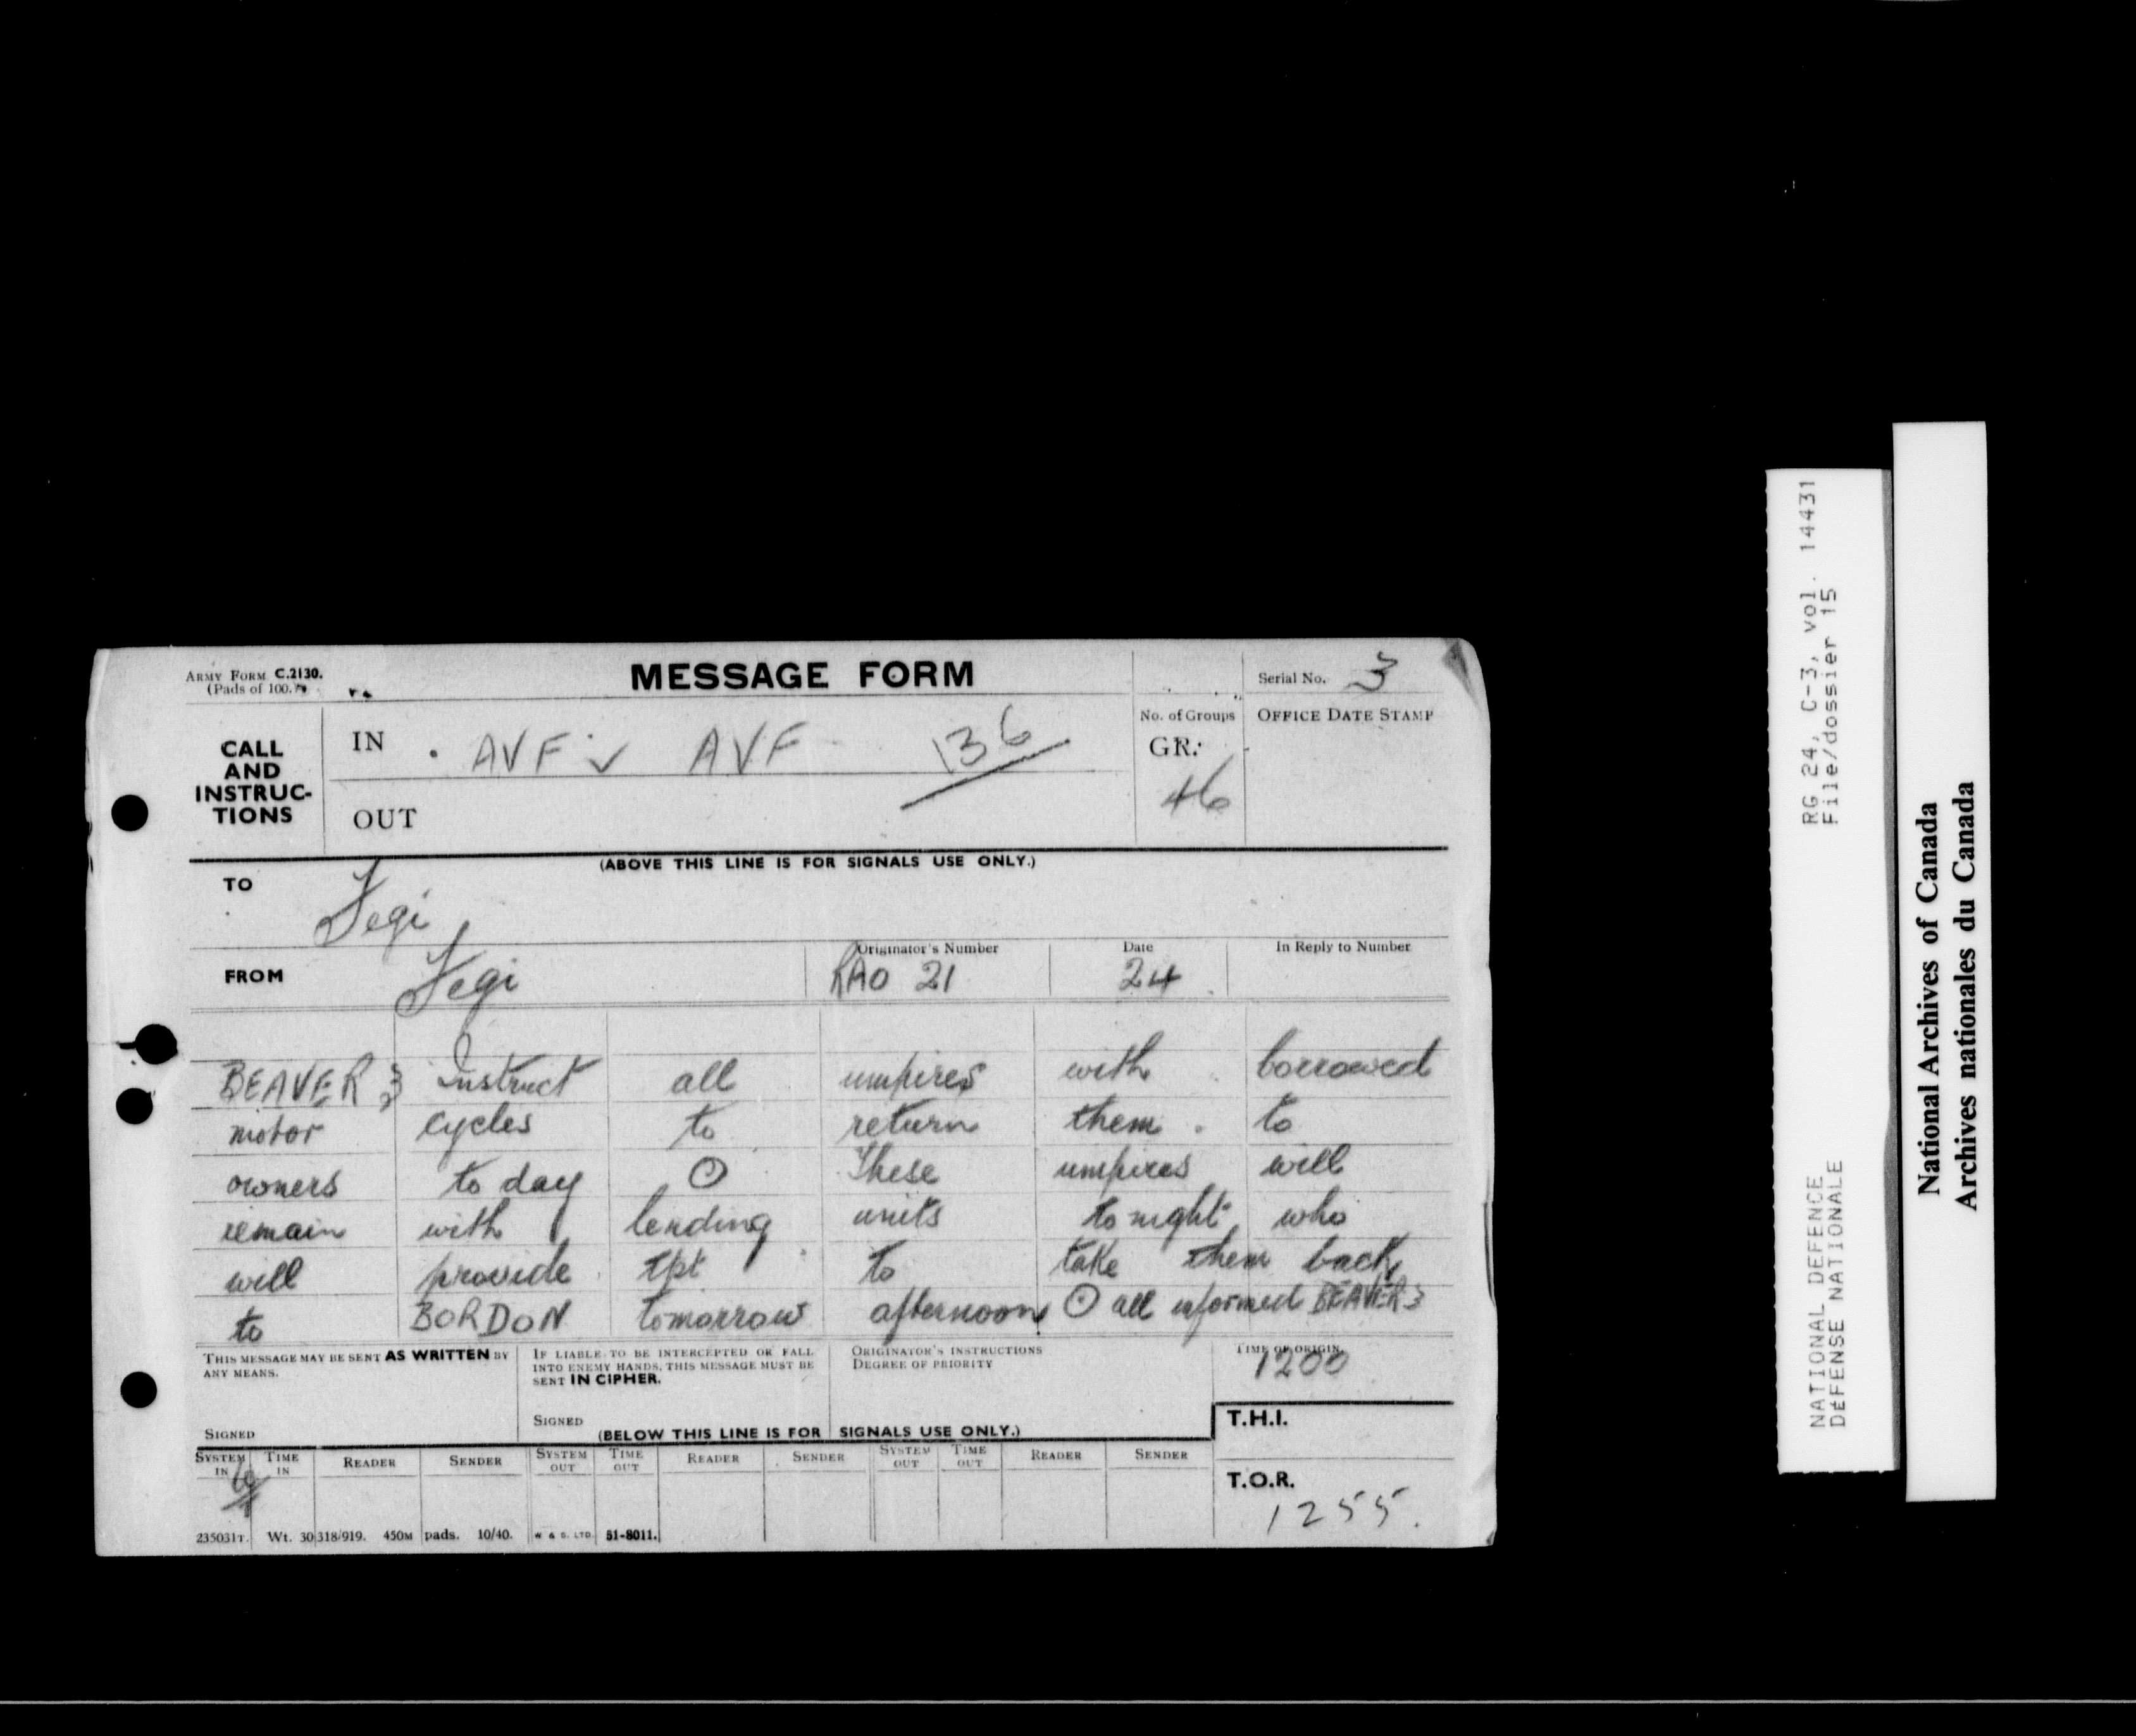 ARMY FORM C.2130.
(Pads of 100.)
MESSAGE FORM
Serial No. 3
CALL AND INSTRUC-TIONS
IN AVF v AVF 136
No. of Groups
GR. 46
OFFICE DATE STAMP
OUT
(ABOVE THIS LINE IS FOR SIGNALS USE ONLY.)
TO Fegi
FROM Fegi
Originator's Number
RAO 21
Date
24
In Reply to Number
BEAVER 3 instruct all umpires with borrowed
motor cycles to return them to
owners to day ⊙ These umpires will
remain with lending units to night who
will provide tpt to take them back
to BORDON tomorrow afternoon ⊙ all informed BEAVER 3
THIS MESSAGE MAY BE SENT AS WRITTEN BY ANY MEANS.
SIGNED
IF LIABLE TO BE INTERCEPTED OR FALL INTO ENEMY HANDS, THIS MESSAGE MUST BE SENT IN CIPHER.
SIGNED
ORIGINATOR'S INSTRUCTIONS
DEGREE OF PRIORITY
TIME OF ORIGIN.
1200
(BELOW THIS LINE IS FOR SIGNALS USE ONLY.)
T.H.I.
SYSTEM IN TIME IN READER SENDER SYSTEM OUT TIME OUT READER SENDER SYSTEM OUT TIME OUT READER SENDER
T.O.R.
1255.
235031T. Wt. 30318/919. 450M pads. 10/40. W & S. LTD. 51-8011.
RG 24, C-3, vol. 14431
File/dossier 15
NATIONAL DEFENCE
DÉFENSE NATIONALE
National Archives of Canada
Archives nationales du Canada